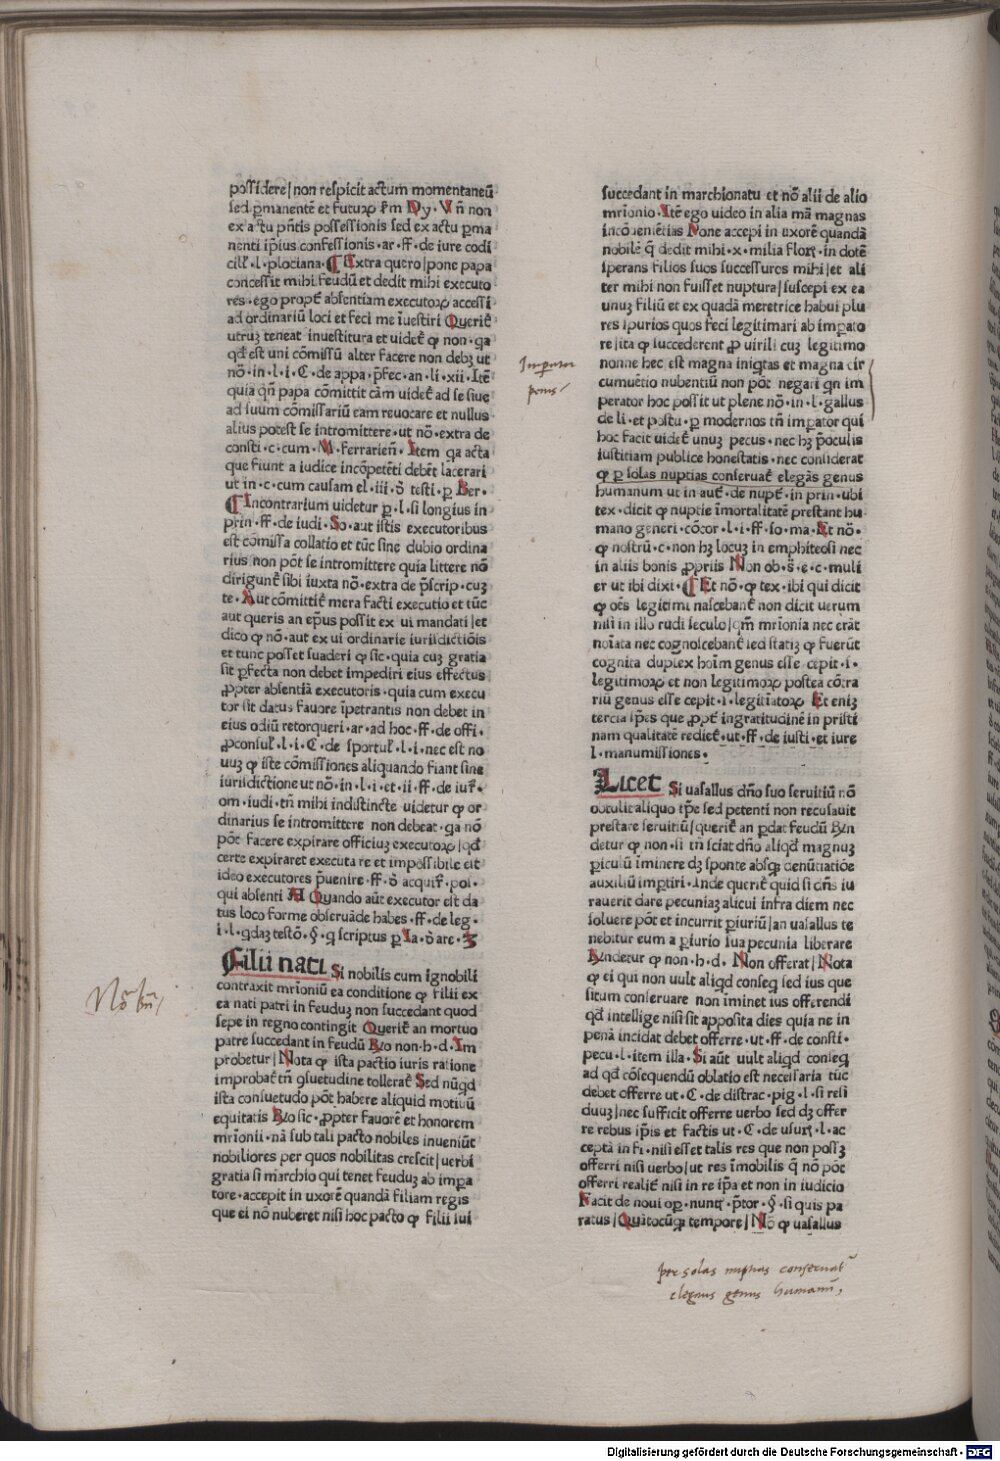 possidere/non respicit actum momentaneū
sed ꝑmanentē et futuꝝ ẜm Dy·Vñ non
ex actu pñtis possessionis sed ex actu ꝑma
nenti ipsius confessionis·ar·ff·de iure codi
cill·l·plociana·¶Extra quero/pone papa
concessit mihi feudū et dedit mihi executo
res·ego propť absentiam executoꝝ accessi
ad ordinariū loci et feci me īuestiri Queriť
utruꝫ teneat inuestitura et uideť ꝙ non·qa
qđ est uni cōmissū alter facere non debꝫ ut
nō·in·l·i·C·de appa·p̄fec·an·li·xii·Itē
quia qñ papa cōmittit cām uideť ad se siue
ad suum cōmissariū eam reuocare et nullus
alius potest se intromittere·ut nō·extra de
consti·c·cum·M·ferrarieñ·Item qa acta
que fiunt a iudice incōpetēti debēt lacerari
ut in·c·cum causam el·iii·đ testi·ꝑ Ber·
¶Incontrarium uidetur ꝑ·l·si longius in
prin·ff·de iudi·So·aut istis executoribus
est cōmissa collatio et tūc sine dubio ordina
rius non pōt se intromittere quia littere nō
dirigunť sibi iuxta nō·extra de p̄scrip·cuꝫ
te·Aut cōmittiť mera facti executio et tūc
aut queris an ep̄us possit ex ui mandati/et
dico ꝙ nō·aut ex ui ordinarie iurisdictiōis
et tunc posset suaderi ꝙ sic·quia cuꝫ gratia
sit ꝑfecta non debet impediri eius effectus
ꝓpter absentiā executoris·quia cum execu
tor sit datus fauore īpetrantis non debet in
eius odiū retorqueri·ar·ad hoc·ff·de offi·
ꝓconsul·l·i·C·de sportul·l·i·nec est no
uuꝫ ꝙ iste cōmissiones aliquando fiant sine
iurisdictione ut nō·in·l·i·et·ii·ff·de iur·
om·iudi·tñ mihi indistincte uidetur ꝙ or
dinarius se intromittere non debeat·qa nō
pōt facere expirare officiuꝫ executoꝝ/qđ
certe expiraret executa re et impossibile est
ideo executores p̄uenire·ff·đ acquir·pos·
qui absenti Al Quando aūt executor est da
tus loco forme obseruāde habes·ff·de leg·
i·l·qdaꝫ testō·§·q scriptus ꝑ Ia·đ are·
Filii nati Si nobilis cum ignobili
contraxit mrīoniū ea conditione ꝙ filii ex
ea nati patri in feuduꝫ non succedant quod
sepe in regno contingit Queriť an mortuo
patre succedant in feudū Rꝰo non·h·d·Im
probetur/Nota ꝙ ista pactio iuris ratione
improbať tñ ꝯsuetudine tollerať Sed nūqđ
ista consuetudo pōt habere aliquid motiuū
equitatis Rꝰo sic·ꝓpter fauorē et honorem
mrīonii·nā sub tali pacto nobiles inueniūt
nobiliores per quos nobilitas crescit/uerbi
gratia si marchio qui tenet feuduꝫ ab impa
tore·accepit in uxorē quandā filiam regis
que ei nō nuberet nisi hoc pacto ꝙ filii sui
Nō bn̄/
Imperator
penis/
succedant in marchionatu et nō alii de alio
mrīonio·Itē ego uideo in alia mā magnas
incōueniētias Pone accepi in uxorē quandā
nobilē q̄ dedit mihi·x·milia Floꝝ·in dotē
sperans filios suos successures mihi/et ali
ter mihi non fuisset nuptura/suscepi ex ea
unuꝫ filiū et ex quadā meretrice habui plu
res spurios quos feci legitimari ab impato
re/ita ꝙ succederent ꝓ uirili cuꝫ legitimo
nonne hec est magna iniqtas et magna cir
cumuētio nubentiū non pōt negari qn im
perator hoc possit ut plene nō·in·l·gallus
de li·et postu·ꝑ modernos tñ impator qui
hoc facit uideť unuꝫ pecus·nec hꝫ p̄oculis
iustitiam publice honestatis·nec considerat
ꝙ ꝑ solas nuptias conseruať elegās genus
humanum ut in auť·de nupť·in prin·ubi
tex·dicit ꝙ nuptie īmortalitatē prestant hu
mano generi·cōcor·l·i·ff·so·ma·Et nō·
ꝙ nostrū·c·non hꝫ locuꝫ in emphiteosi nec
in aliis bonis ꝓpriis Non ob·s̄·e·c·muli
er ut ibi dixi·¶Et nō·ꝙ tex·ibi qui dicit
ꝙ oēs legitimi nascebanť non dicit uerum
nisi in illo rudi seculo/qm̄ mrīonia nec erāt
noīata nec cognoscebanť sed statiꝫ ꝙ fuerūt
cognita duplex hoīm genus esse cepit·i·
legitimoꝝ et non legitimoꝝ postea cōtra
riū genus esse cepit·i·legitiatoꝝ Et eniꝫ
tercia sp̄es que ꝓpť ingratitudinē in pristi
nam qualitatē rediet·ut·ff·de iusti·et iure
l·manumissiones·
Licet Si uasallus dño suo seruitiū nō
obtulit aliquo tp̄e sed petenti non recusauit
prestare seruitiū/queriť an ꝑdat feudū Rꝰn
detur ꝙ non·si tñ sciat dño aliqđ magnuꝫ
ꝑiculū īminere dꝫ sponte absqꝫ denūtiatiōe
auxiliū imptiri·Inde queriť quid si dñs iu
rauerit dare pecuniaꝫ alicui infra diem nec
soluere pōt et incurrit ꝑiuriū/an uasallus te
nebitur eum a ꝑiurio sua pecunia liberare
Rꝰndetur ꝙ non·h·d·Non offerat/Nota
ꝙ ei qui non uult aliqđ conseq sed ius que
situm conseruare non īminet ius offerendi
qđ intellige nisi sit apposita dies quia ne in
penā incidat debet offerre·ut·ff·de consti·
pecu·l·item illa·Si aūt uult aliqđ conseq
ad qđ cōsequendū oblatio est necessaria tūc
debet offerre ut·C·de distrac·pig·l·si resi
duuꝫ/nec sufficit offerre uerbo sed dꝫ offer
re rebus ip̄is et factis ut·C·de usuꝝ·l·ac
ceptā in fi·nisi esset talis res que non possꝫ
offerri nisi uerbo/ut res īmobilis q̄ nō pōt
offerri realiť nisi in re ip̄a et non in iudicio
Facit de noui op·nunt·p̄tor·§·si quis pa
ratus/Quātocūqꝫ tempore/Nō ꝙ uasallus
per solas nuptias conseruatur
elegans genus humanū,
Digitalisierung gefördert durch die Deutsche Forschungsgemeinschaft - DFG